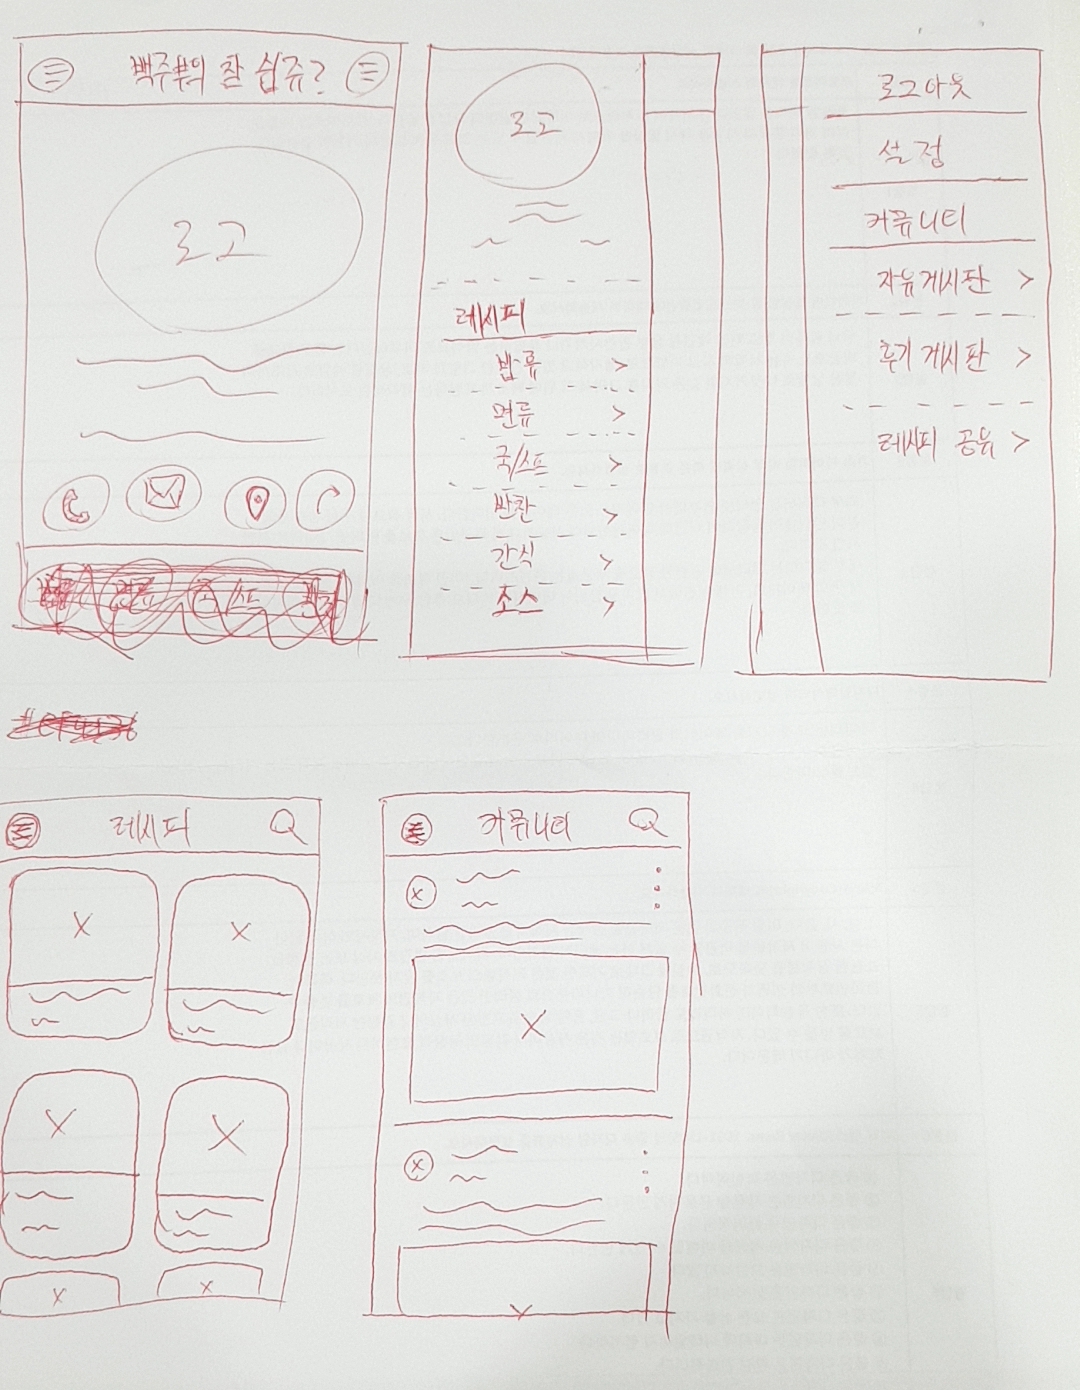 백주부의 참 쉽쥬?
로고
로고
레시피
밥류 >
면류 >
국/스프 >
반찬 >
간식 >
소스 >
로그아웃
설정
커뮤니티
자유게시판 >
후기 게시판 >
레시피 공유 >
레시피
X X
X X
X X
커뮤니티
X
X
X
X